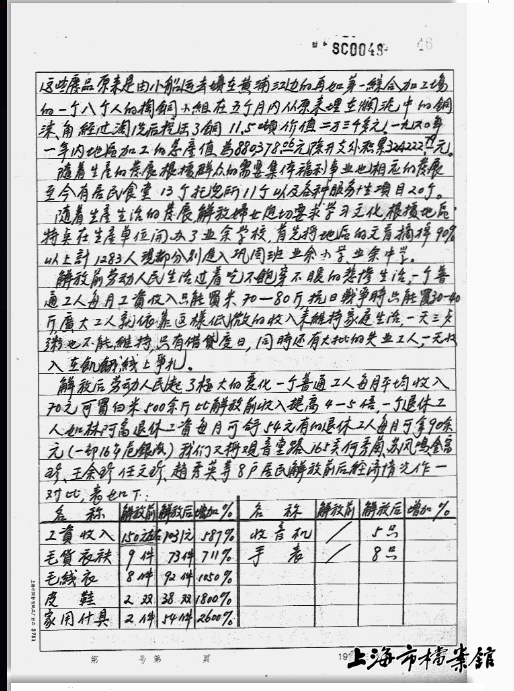 SC0048
这些废品原来是由小船运去填在黄浦江边的再如第一综合加工场
的一个八个人的掏铜小组在五个月内从原来埋在烂泥中的铜
沫、角经过淘洗后提炼了铜11.5吨价值二万三千多元。一九六〇年
一年内地区加工的总产值为880378.05元除开支外积累324222元。
随着生产的发展根据群众的需要集体福利事业也相应的发展
至今有居民食堂13个托儿所11个以及各种服务性项目20个。
随着生产生活的发展解放妇女迫切要求学习文化根据地区
特点在生产单位开办了业余学校,首先将地区的文盲摘掉90%
以上計1283人现都分别进入巩固班业余小学业余中学。
解放前劳动人民生活过着吃不饱穿不暖的悲惨生活,一个普
通工人每月工资收入只能買米70—80斤抗日戰争時只能買30-40
斤廣大工人就依靠这样低微的收入来维持家庭生活,一天三支
粥也不能維持,只有借貸度日,同時还有大批的失业工人一元收
入在飢餓線上爭扎。
解放后劳动人民起了极大的变化一个普通工人每月平均收入
70元可買白米500余斤比解放前收入提高4-5倍一个退休工
人如林阿高退休工资每月可領54元有的退休工人每月可拿90余
元 我們又将观音堂路165弄何秀蘭、苏凤鳴
王余珍 任文珍、趙秀英等8户居民解放前后经济情况作一
对比,表如下:
名称 解放前 解放后 增加% 名称 解放前 解放后 增加%
工資收入 150元 1031元 587% 收音机 / 5只
毛貨衣袂 9件 73件 711% 手表 / 8只
毛线衣 8件 92件 1050%
皮鞋 2双 38双 1800%
家用什具 2件 54件 2600%
第 号第 頁 19
上海市檔案館